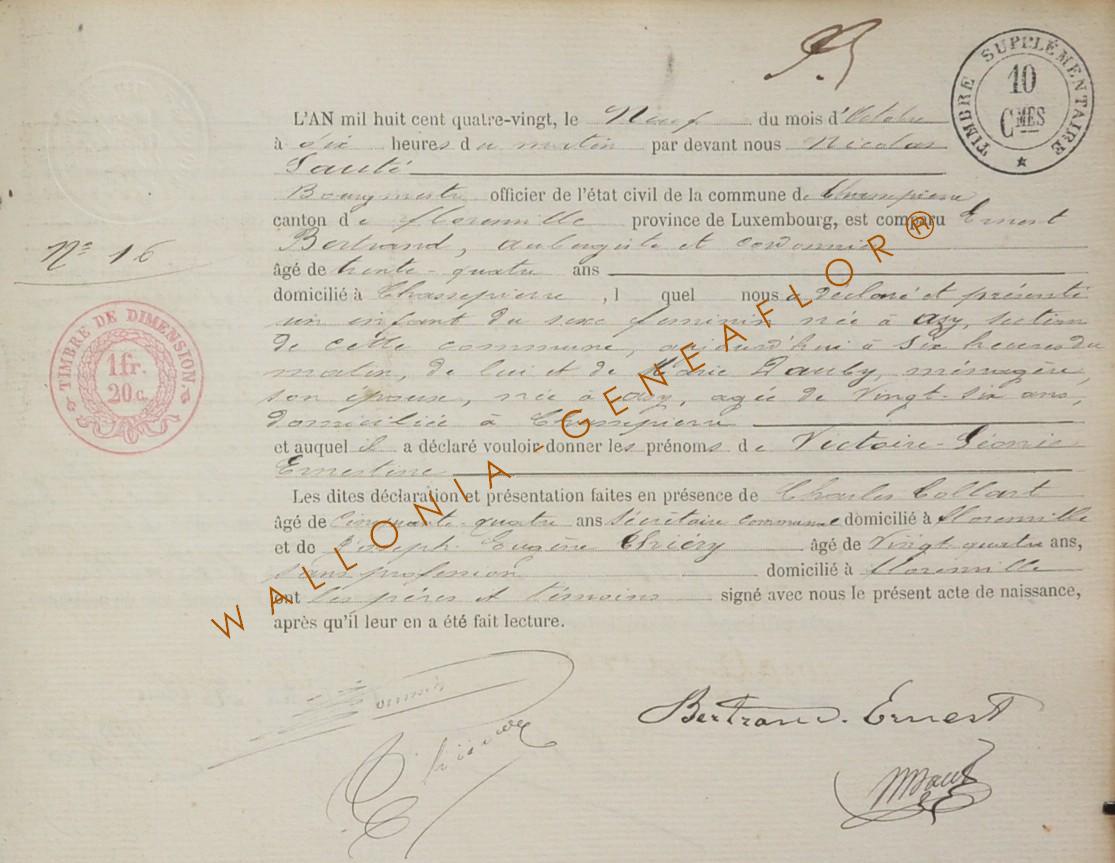 TIMBRE SUPPLÉMENTAIRE
10
CMES
L'AN mil huit cent quatre-vingt, le Neuf du mois d'Octobre
à dix heures du matin par devant nous Nicolas
Bourgmestre officier de l'état civil de la commune de Chassepierre
canton de Florenville province de Luxembourg, est comparu Ernest
Bertrand, aubergiste et cordonnier
N° 16
âgé de trente-quatre ans
domicilié à Chassepierre, l quel nous a déclaré et présenté
un enfant du sexe feminin née à Azy, section
de cette commune, aujourd'hui à six heures du
matin, de lui et de Marie Dauby, ménagère,
son épouse, née à Azy, agée de vingt-six ans,
domiciliée à Chassepierre
et auquel il a déclaré vouloir donner les prénoms de Victoire-Léonie
Ernestine
TIMBRE DE DIMENSION.
1 fr.
20 c.
Les dites déclaration et présentation faites en présence de Charles Collart
âgé de cinquante-quatre ans sécrétaire communal domicilié à Florenville
et de Joseph Eugène Thiéry âgé de vingt-quatre ans,
sans profession domicilié à Florenville
ont les pères et témoins signé avec nous le présent acte de naissance,
après qu'il leur en a été fait lecture.
WALLONIA-GENEAFLOR®
Bertrand. Ernest